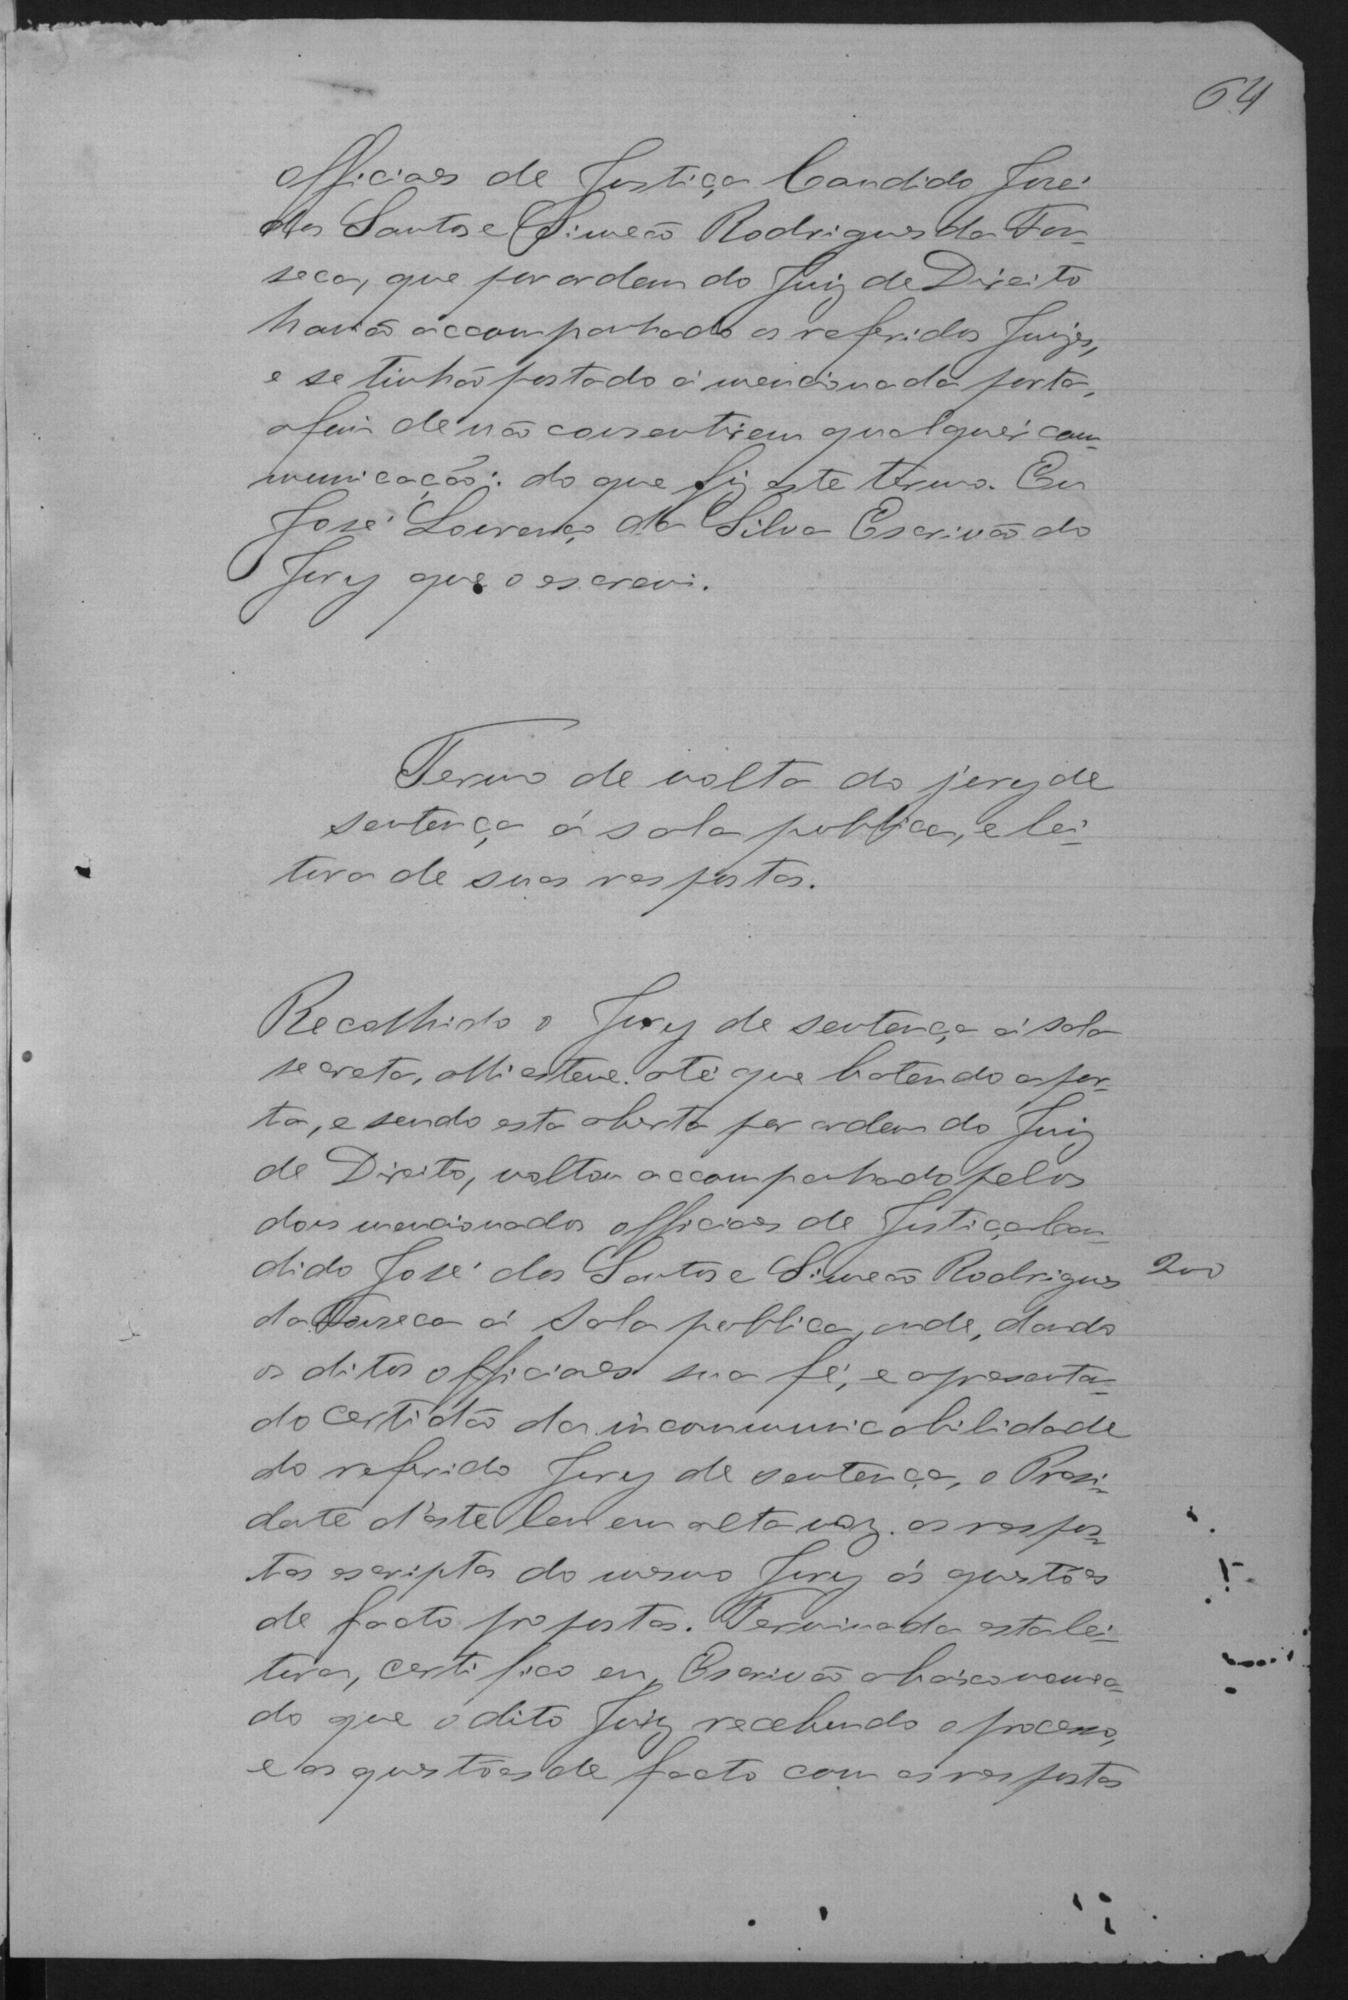 64
officiaes de Justiça Candido José
dos Santos e Simeão Rodrigues da Fon-
seca, que por ordem do Juiz de Direito
havião accompanhado os referidos Juizes,
e se tinhão postado á mencionada porta,
afim de não consentirem qualquer com-
municação: do que fiz este termo. Eu
José Lourenço da Silva Escrivão do
Jury que o escrevi.
Termo de volta do jury de
sentença á sala publica, e lei-
tura de suas respostas.
Recolhido o Jury de sentença á sala
secreta, alli esteve até que batendo a por-
ta, e sendo esta aberta por ordem do Juiz
de Direito, voltou accompanhado pelos
dous mencionados officiaes de Justiça Can-
dido José dos Santos e Simeão Rodrigues
200
da Fonseca á Sala publica, onde, dando
os ditos officiaes sua fé, e apresentan-
do certidão da incommunicabilidade
do referido Jury de sentença, o Presi-
dente d'este leu em alta voz as respos-
tas escriptas do mesmo Jury ás questões
de facto propostas. Terminada esta lei-
tura, certifico eu, Escrivão abaixo nomea-
do que o dito Juiz recebendo o processo,
e as questões de facto com as respostas